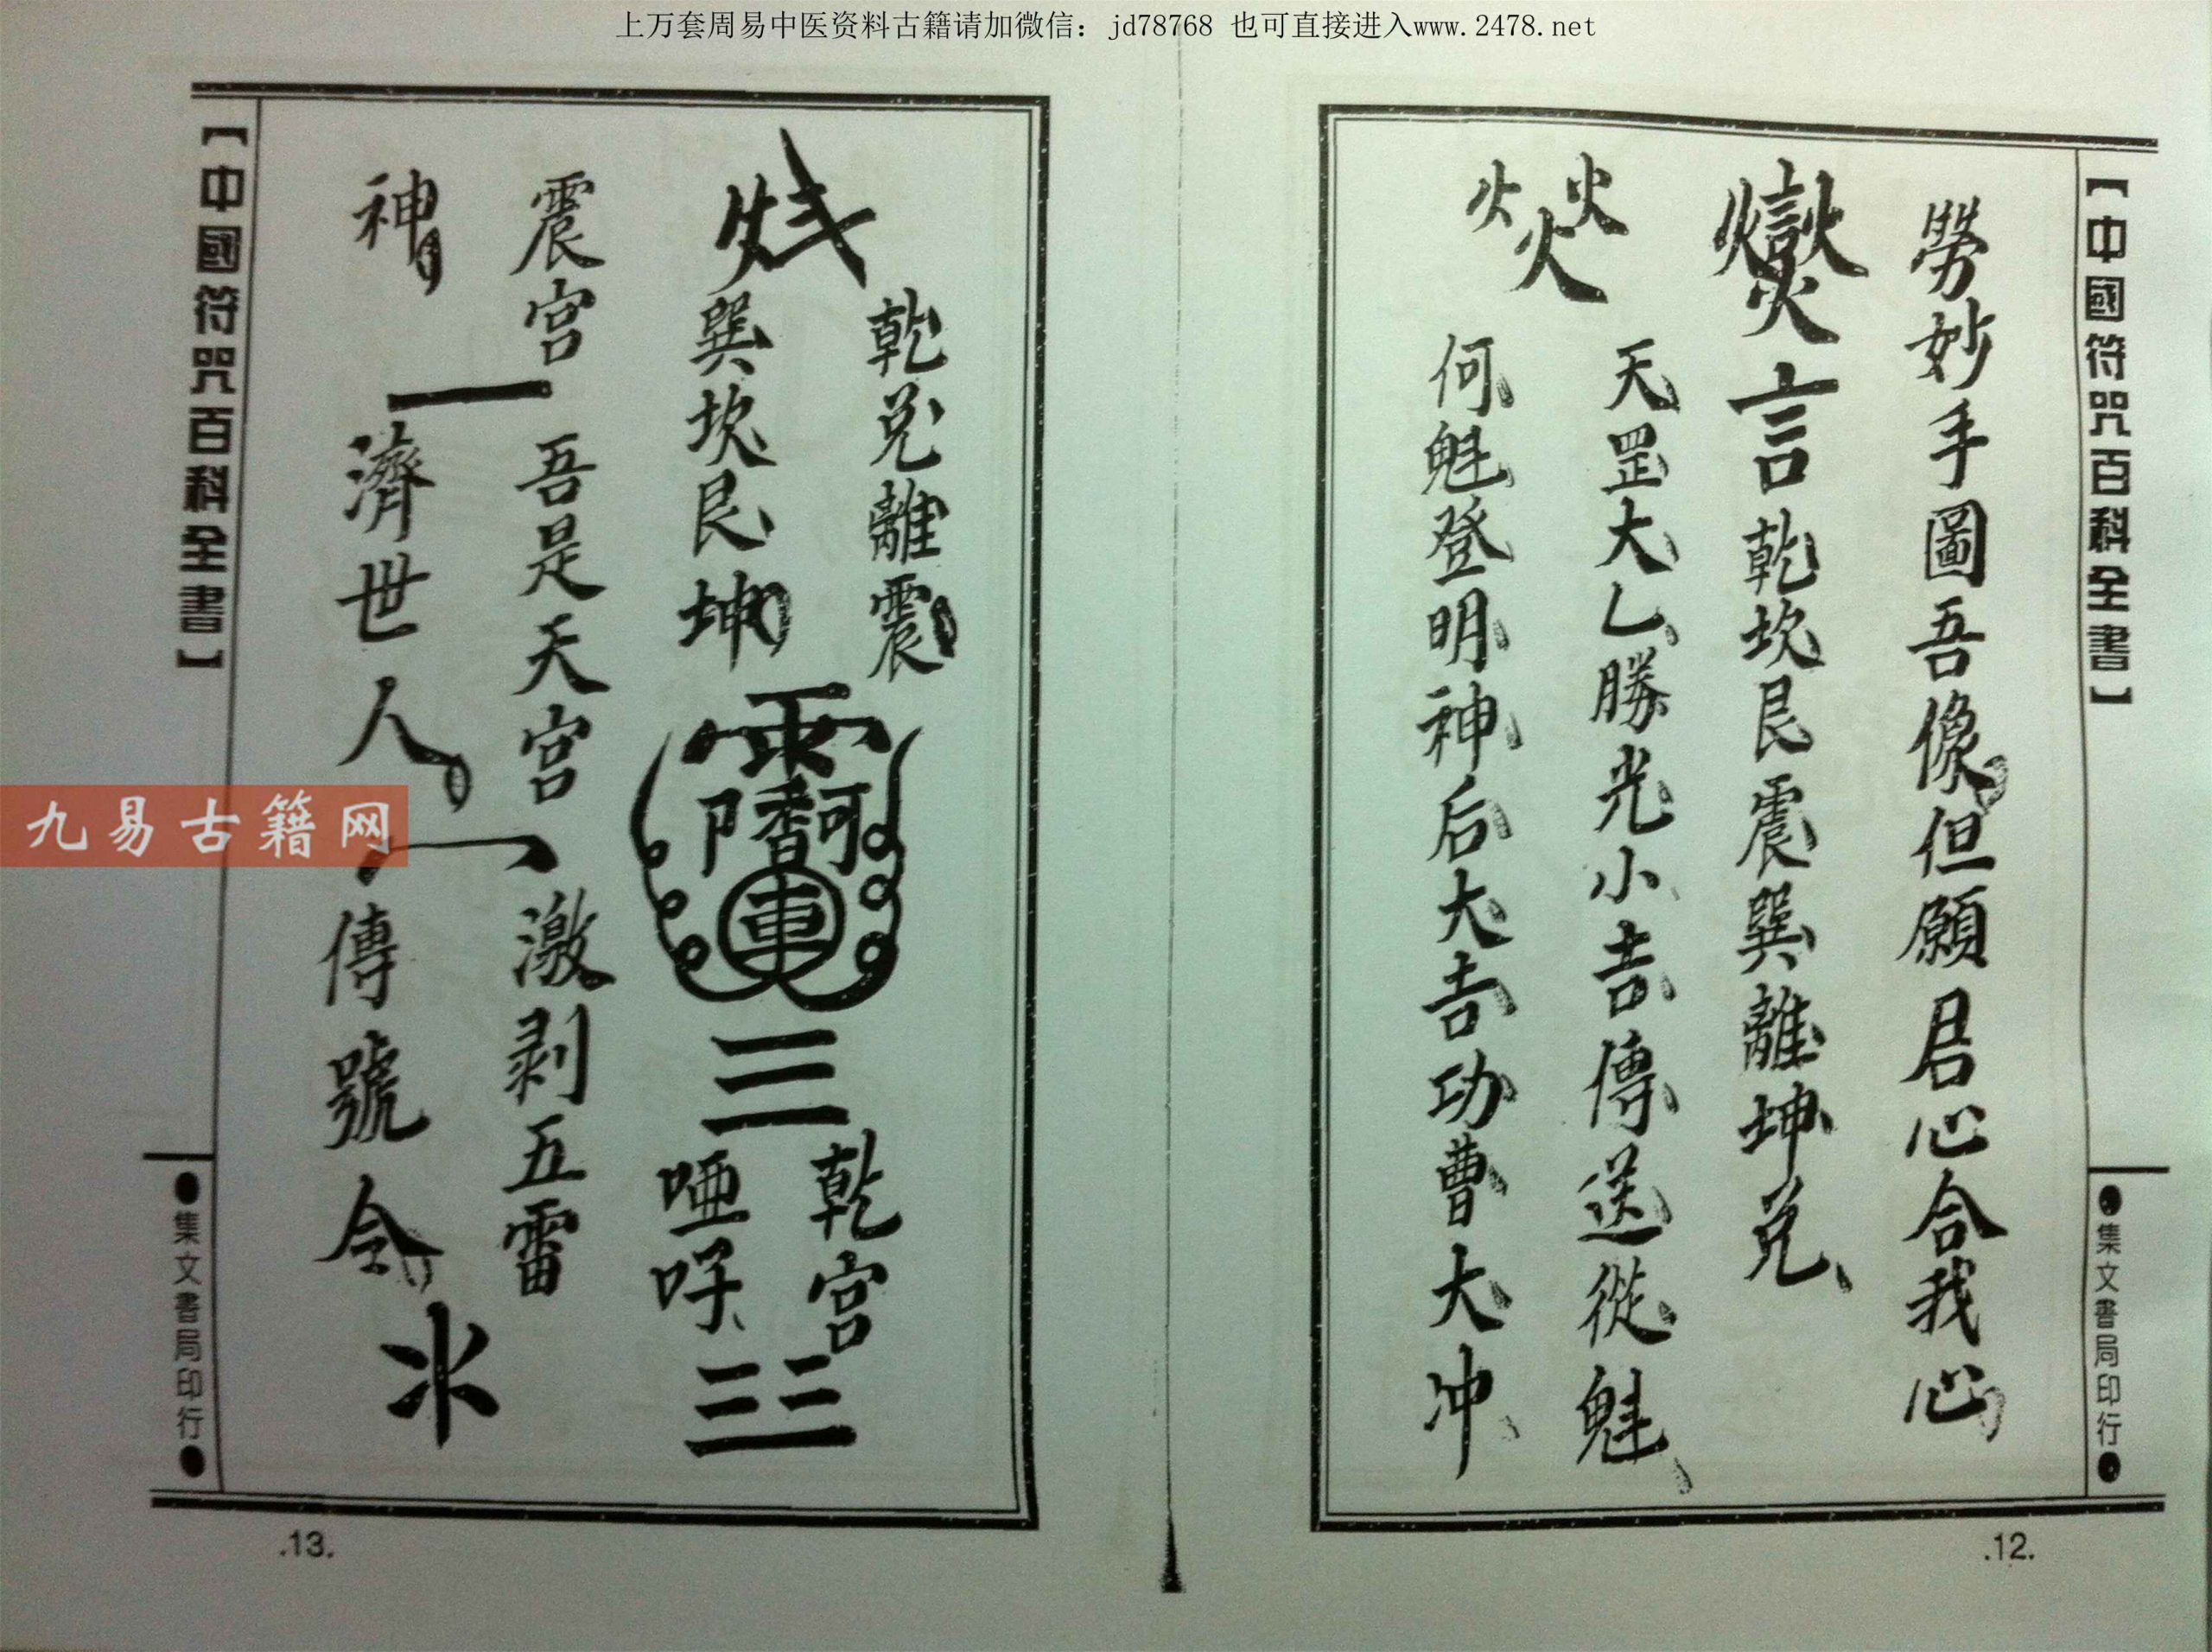 上万套周易中医资料古籍请加微信：jd78768 也可直接进入www.2478.net
【中國符咒百科全書】
●集文書局印行●
勞妙手圖吾像但願君心合我心
言乾坎艮震巽離坤兌
天罡大乙勝光小吉傳送從魁
何魁登明神后大吉功曹大冲
.12.
乾兌離震
巽坎艮坤
乾宮
啞吇
震宮
吾是天宮
激剥五雷
神
濟世人
傳號令
【中國符咒百科全書】
●集文書局印行●
.13.
九易古籍网